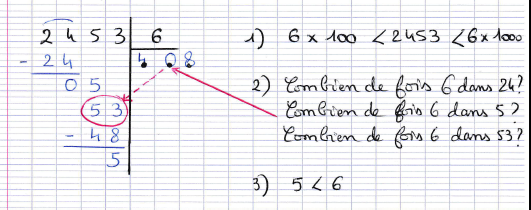 2 4 5 3 6
- 2 4 4 0 8
0 5
5 3
- 4 8
5
1) 6 x 100 < 2453 < 6 x 1000
2) Combien de fois 6 dans 24?
Combien de fois 6 dans 5?
Combien de fois 6 dans 53?
3) 5 < 6